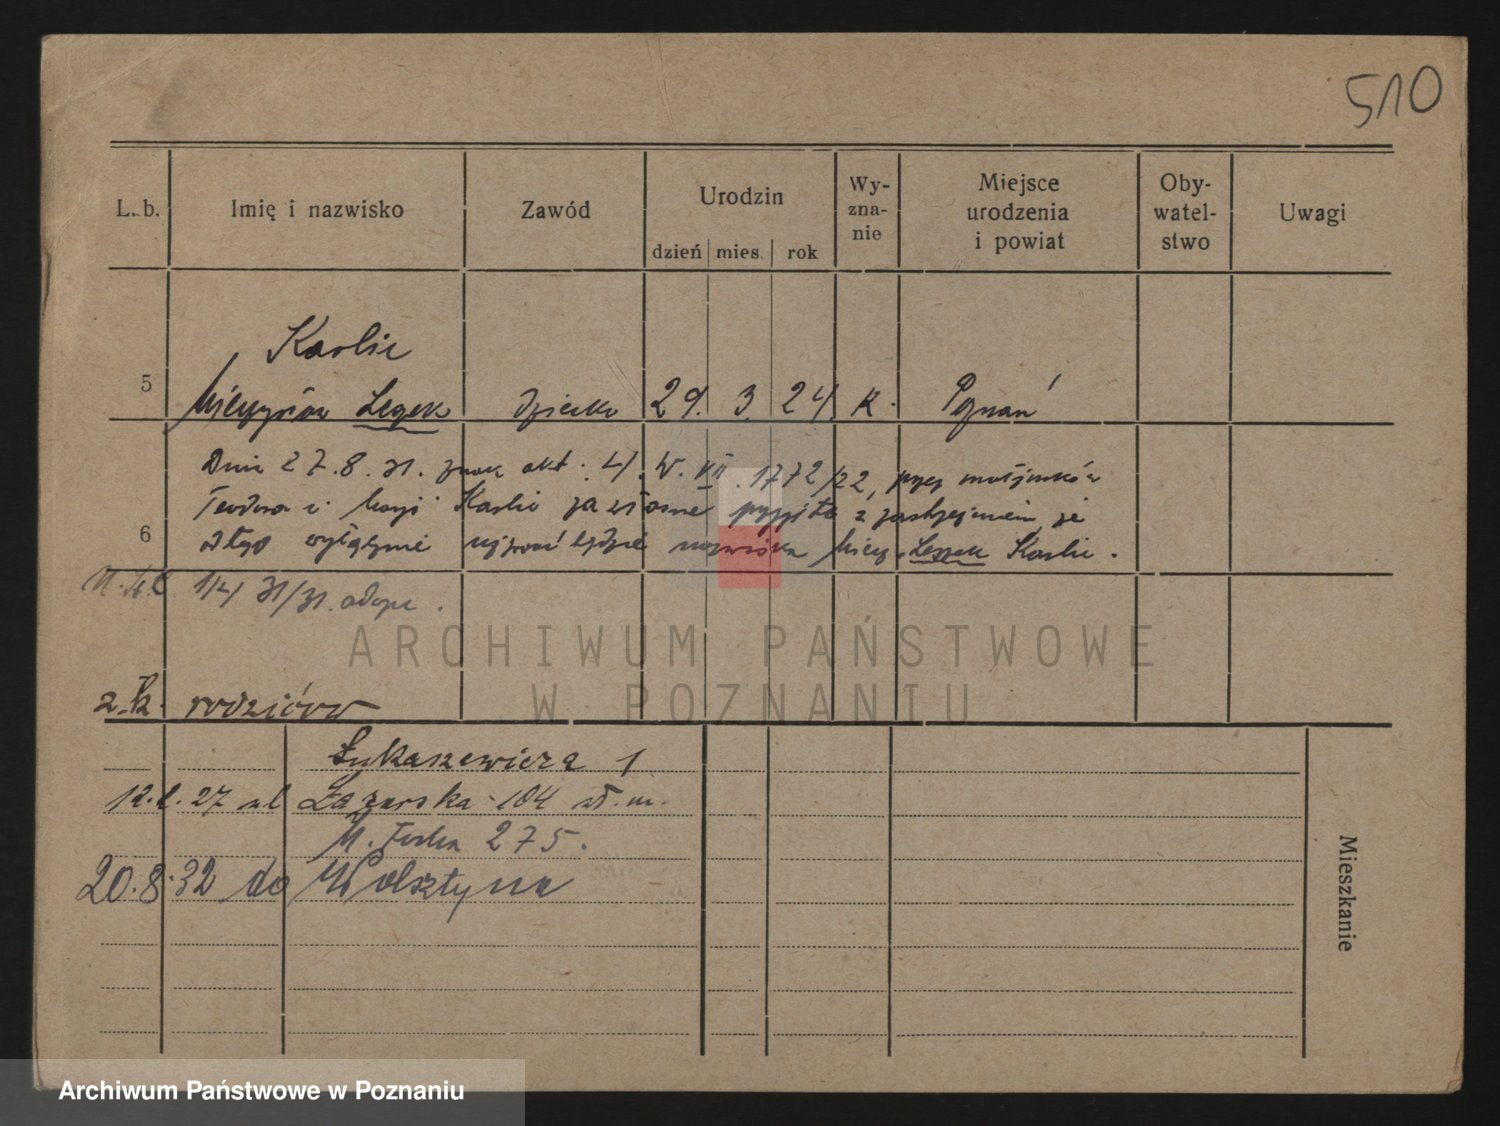 510
L. b. Imię i nazwisko Zawód Urodzin Wy-zna-nie Miejsce urodzenia i powiat Oby-watel-stwo Uwagi
dzień mies. rok
Karlic
5 Mieczysław Leszek dziecko 29. 3. 24 K. Poznań
Dnia 27.8.31. znak akt: 4. W. VII. 1772/22, przez małżonków
Teodora i Marji Karlic za własne przyjęte z zastrzeżeniem, że
6 wyłącznie używać będzie nazwiska Miecz. Leszek Karlic.
14/31/31. adopc.
z. k. rodziców
Łukaszewicza 1
27 ul Łazarska 104
M. Focha 275.
20.8.32 do Wolsztyna
Mieszkanie
ARCHIWUM PAŃSTWOWE
W POZNANIU
Archiwum Państwowe w Poznaniu